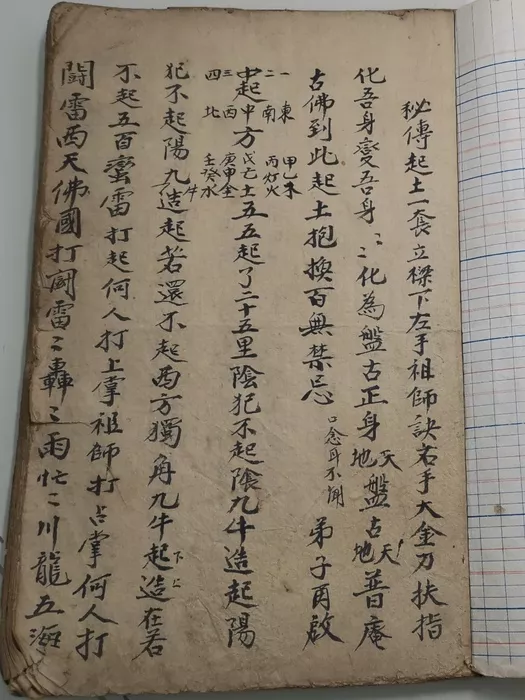 秘傳起土一套立樑下左手祖師訣右手大金刀扶指
化吾身變吾身〻〻化為盤古正身天地盤古天地普庵
古佛到此起土抱換百無禁忌口念耳不聞弟子再啟
一東甲乙木
二南丙灯火
中起中方戊己土五五起了二十五里陰犯不起陰九牛造起陽
三西庚申金
四北壬癸水
犯不起陽九牛造起若還不起西方獨角九牛起造下上在若
不起五百蠻雷打起何人打上掌祖師打占掌何人打
鬪雷西天佛國打鬪雷〻轟〻雨忙〻川龍五海